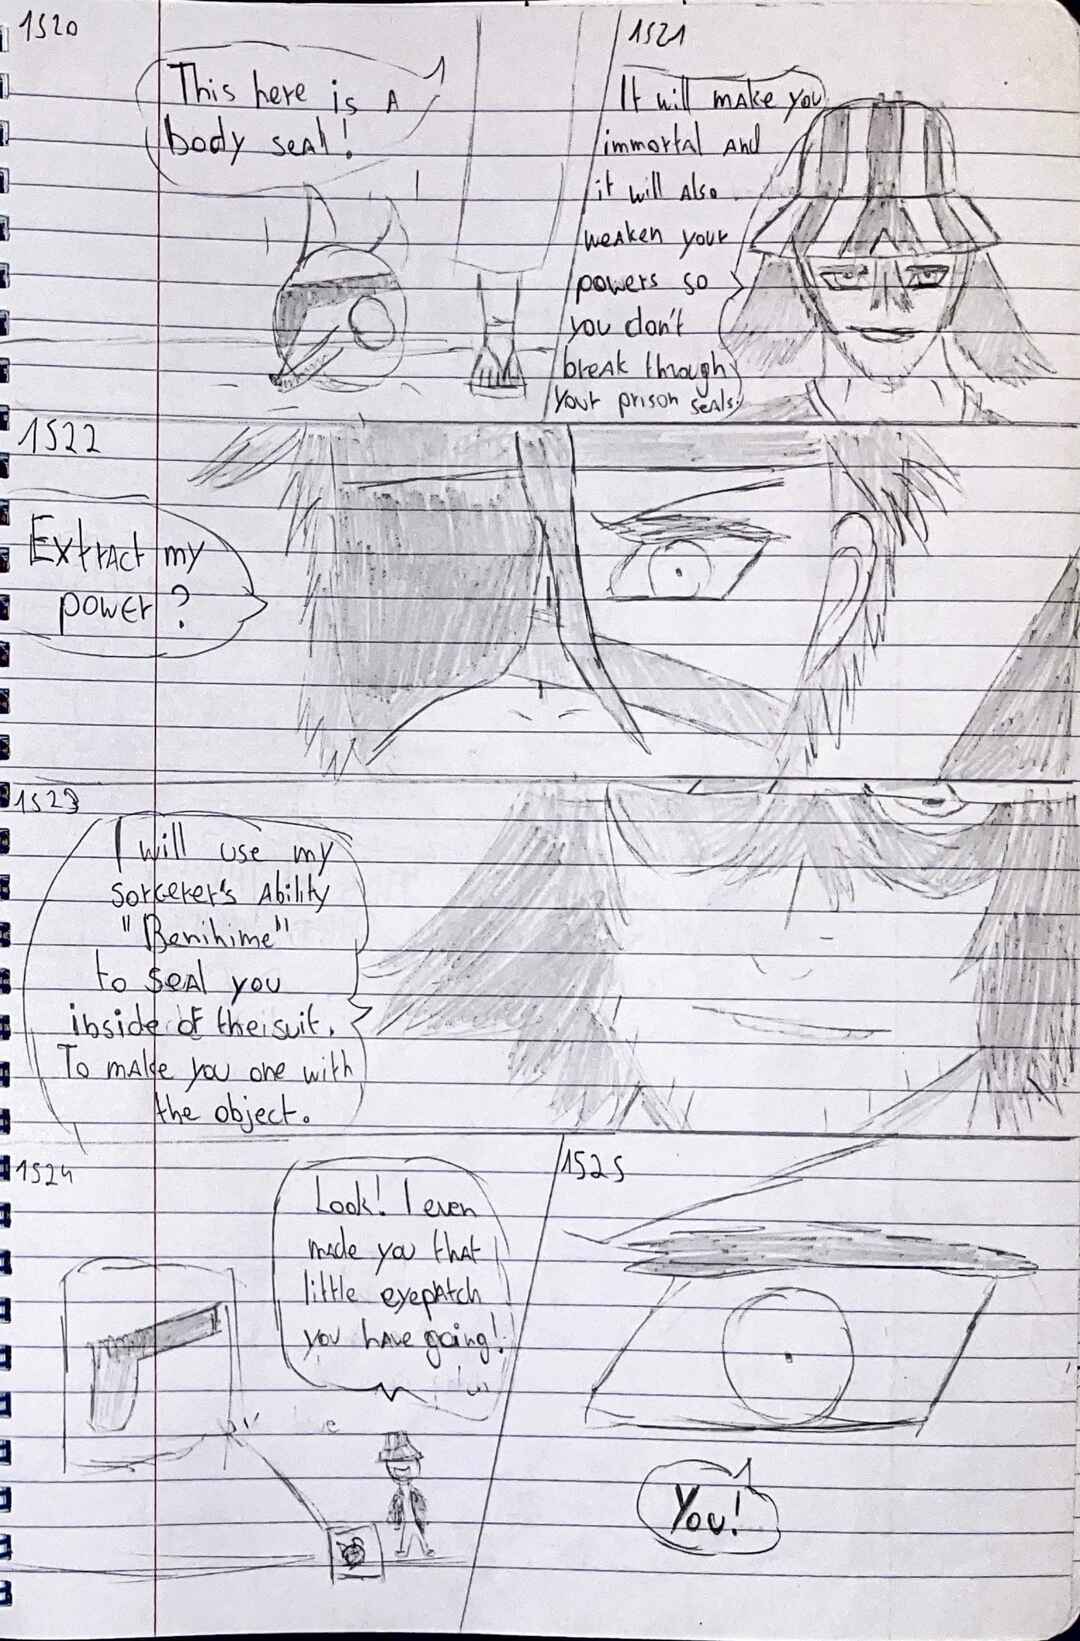 1520
This here is a
body seal!
1521
It will make you
immortal and
it will also
weaken your
powers so
you don't
break through
your prison seals.
1522
Extract my
power?
1523
I will use my
sorcerer's ability
"Benihime"
to seal you
inside of the suit.
To make you one with
the object.
1524
Look! I even
made you that
little eyepatch
you have going!
1525
You!